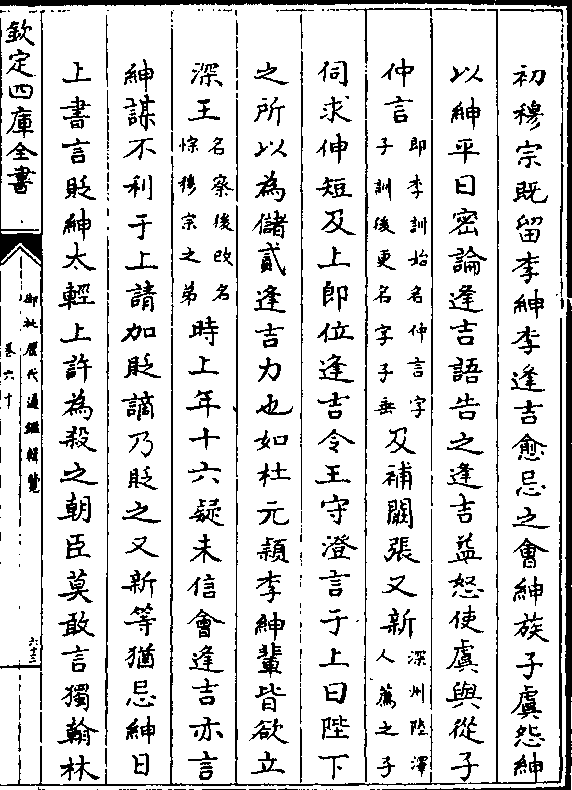 初穆宗既留李紳李逢吉愈忌之會紳族子虞怨紳
以紳平日密論逢吉語告之逢吉益怒使虞與從子
仲言即李訓始名仲言字子訓後更名字子垂及補闕張又新深州陸澤人薦之子
伺求紳短及上即位逢吉令王守澄言于上曰陛下
之所以為儲貳逢吉力也如杜元穎李紳輩皆欲立
深王名察後改名悰穆宗之弟時上年十六疑未信會逢吉亦言
紳謀不利于上請加貶謫乃貶之又新等猶忌紳日
上書言貶紳太輕上許為殺之朝臣莫敢言獨翰林
欽定四庫全書
御批歷代通鑑輯覽
卷六十
六十三